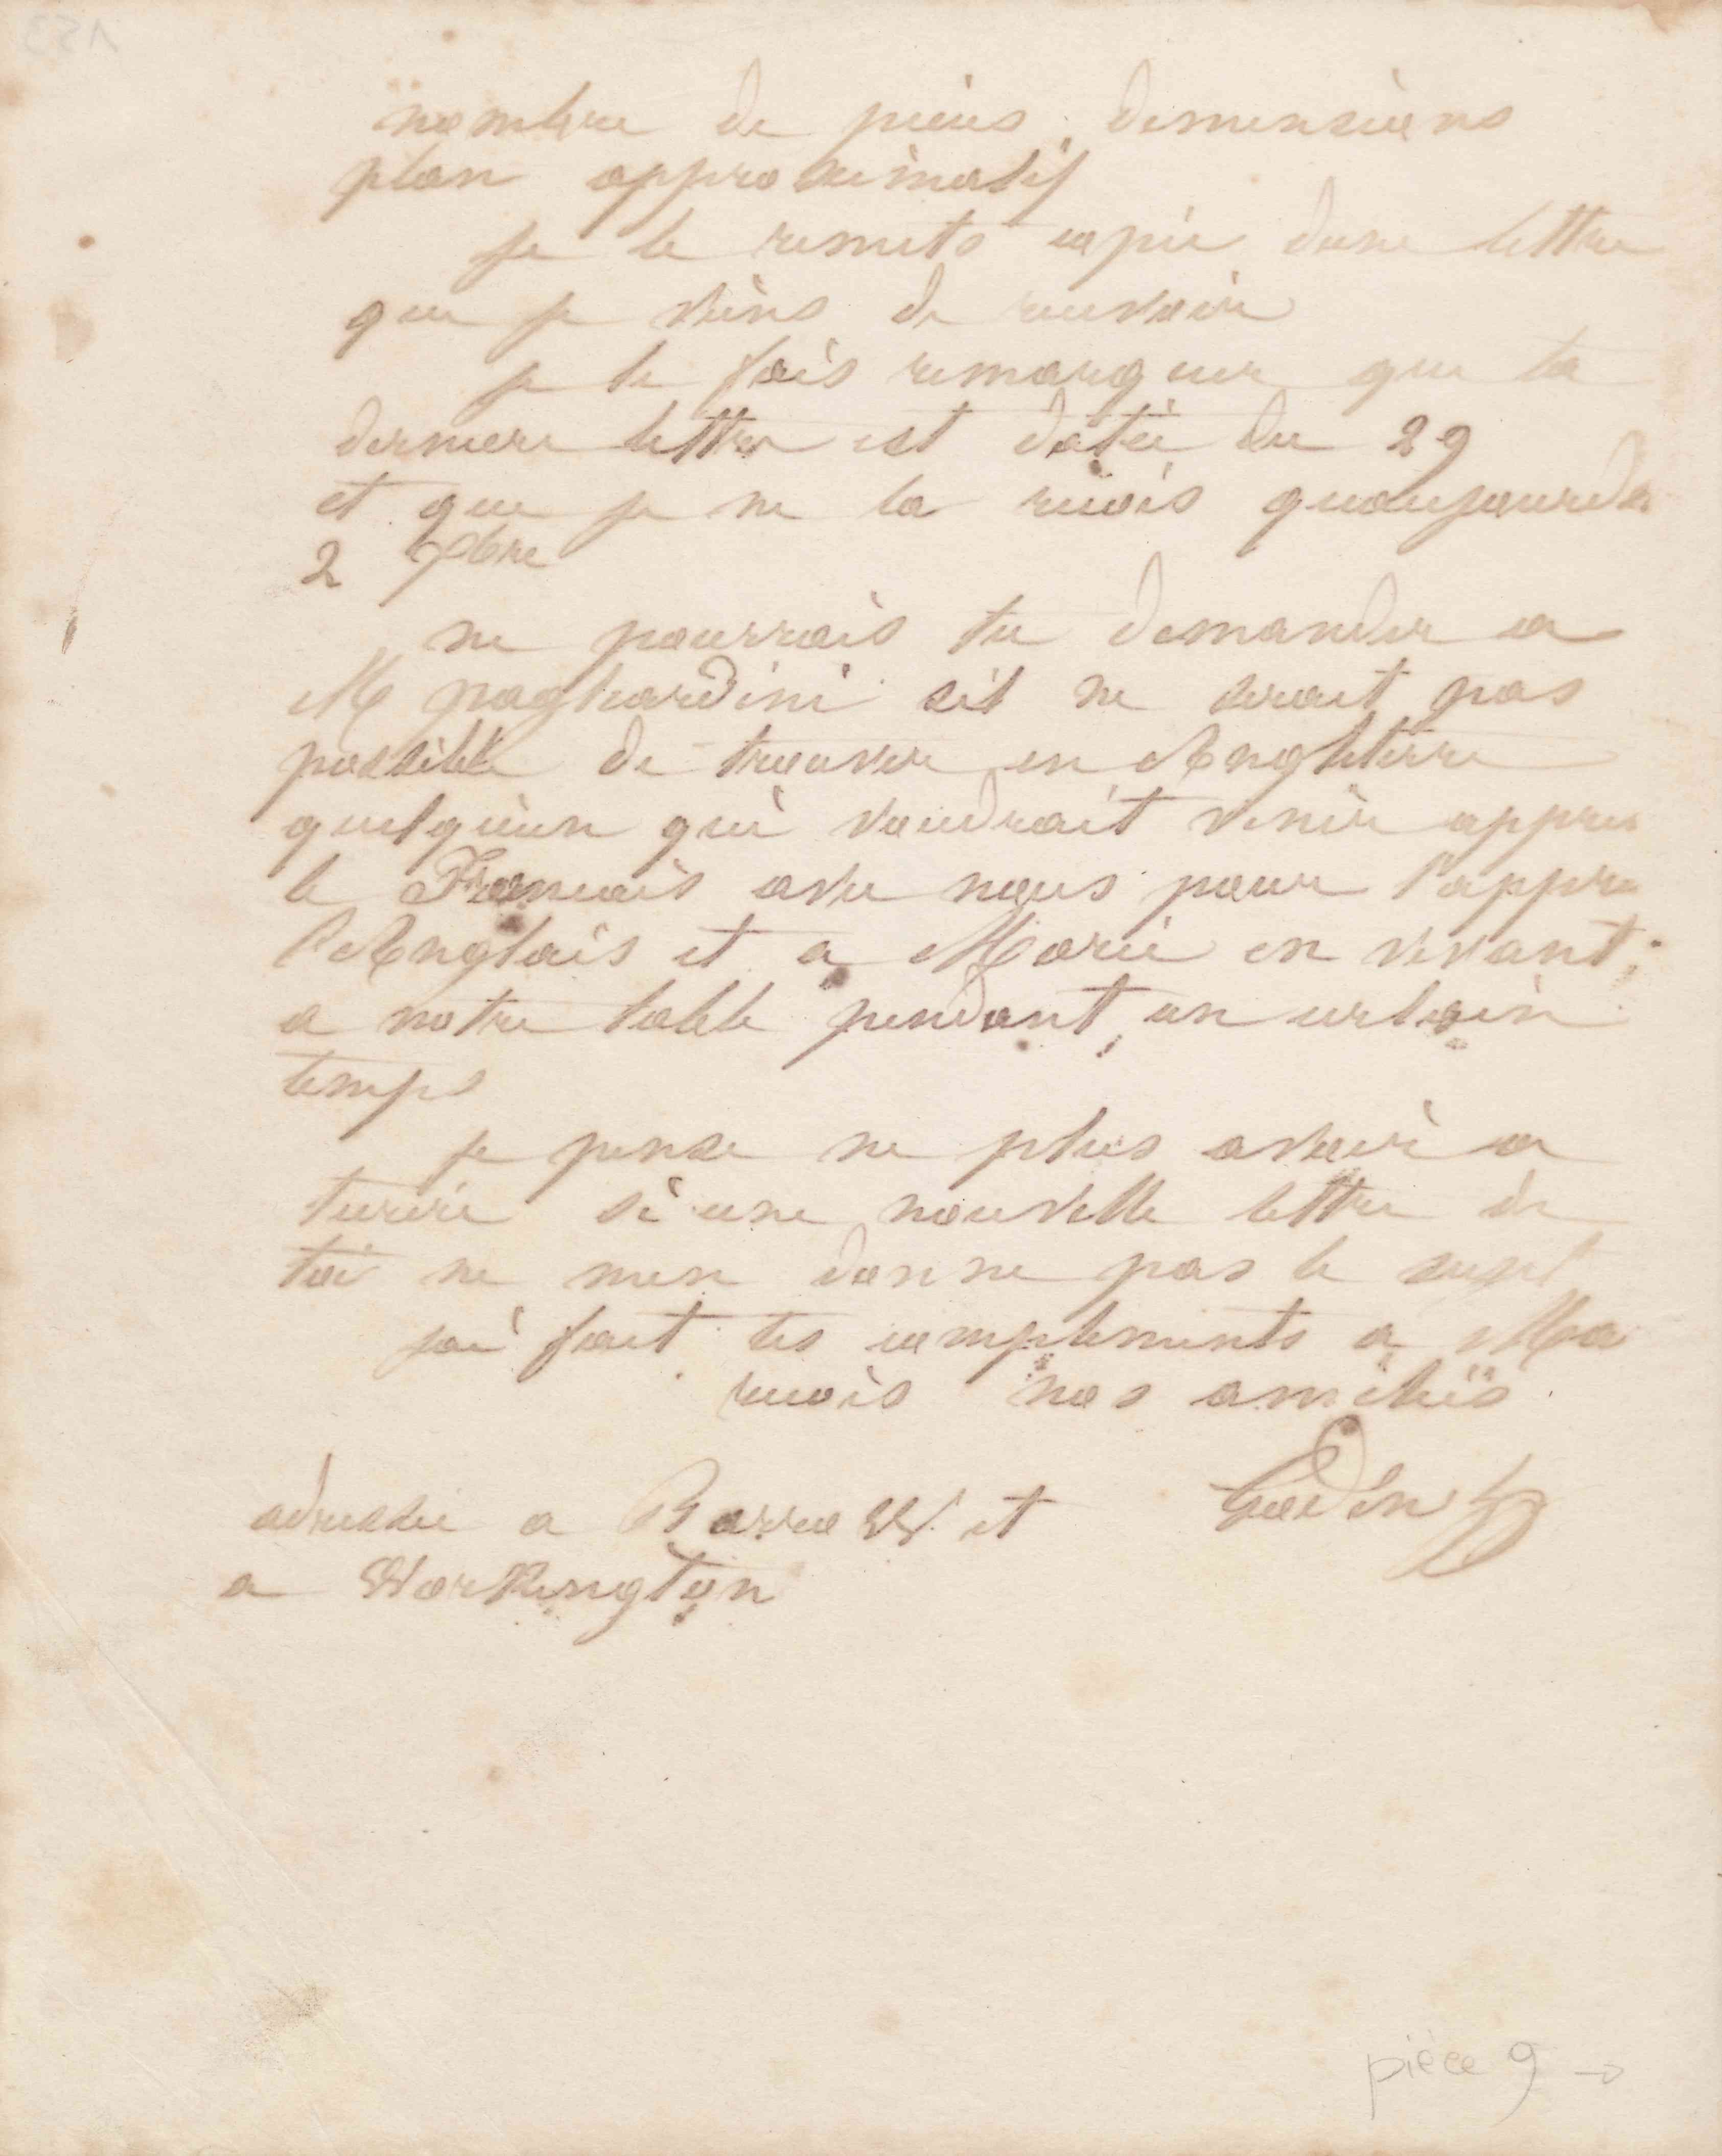 nombre de pièces dimensions
plan approximatif
je te remets copie dune lettre
que je viens de recevoir
je te fais remarquer que ta
derniere lettre est datée du 29
et que je ne la reçois quaujourd
2 Xbre
ne pourrais tu demander a
M pagliardini sil ne serait pas
possible de trouver en Angleterre
quelquun qui voudrait venir appren
le Francais avec nous pour t'appren
l'Anglais et a Marie en vivant
a notre table pendant un certain
temps
je pense ne plus avoir a
tecrire si une nouvelle lettre de
toi ne men donne pas le sujet
jai fait tes compliments a Ma
recois nos amitiés
Godin
adressée a Barrow et
a Workington
pièce 9 →